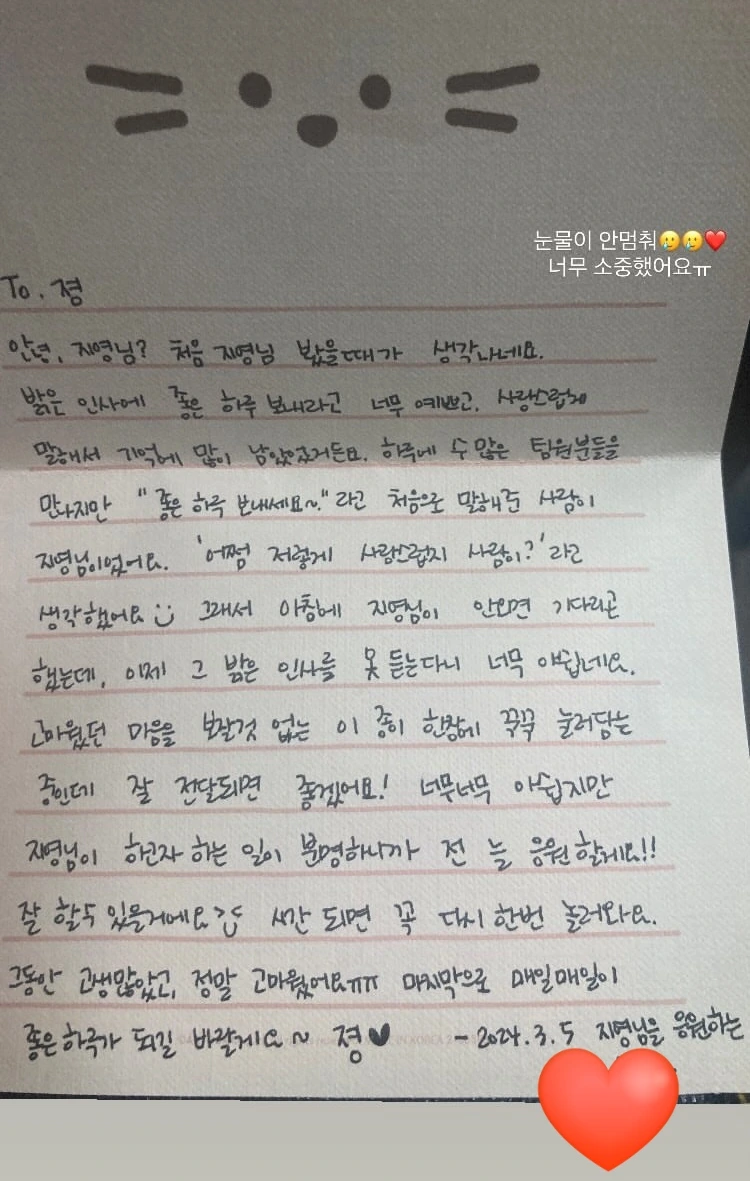 눈물이 안멈춰🥲🥲❤️
너무 소중했어요ㅠ
To. 졍
안녕, 지영님? 처음 지영님 봤을때가 생각나네요.
밝은 인사에 좋은 하루 보내라고 너무 예쁘고, 사랑스럽게
말해서 기억에 많이 남았었거든요. 하루에 수 많은 팀원분들을
만나지만 "좋은 하루 보내세요~"라고 처음으로 말해준 사람이
지영님이었어요. '어쩜 저렇게 사랑스럽지 사람이?'라고
생각했어요 :) 그래서 아침에 지영님이 안오면 기다리곤
했는데, 이제 그 밝은 인사를 못 듣는다니 너무 아쉽네요.
고마웠던 마음을 보잘것 없는 이 종이 한장에 꾹꾹 눌러담는
중인데 잘 전달되면 좋겠어요! 너무너무 아쉽지만
지영님이 하고자 하는 일이 분명하니까 전 늘 응원할게요!!
잘 할수 있을거에요 시간 되면 꼭 다시 한번 놀러와요.
그동안 고생많았고, 정말 고마웠어요ㅠㅠ 마지막으로 매일매일이
좋은하루가 되길 바랄게요~ 졍♥ - 2024.3.5 지영님을 응원하는